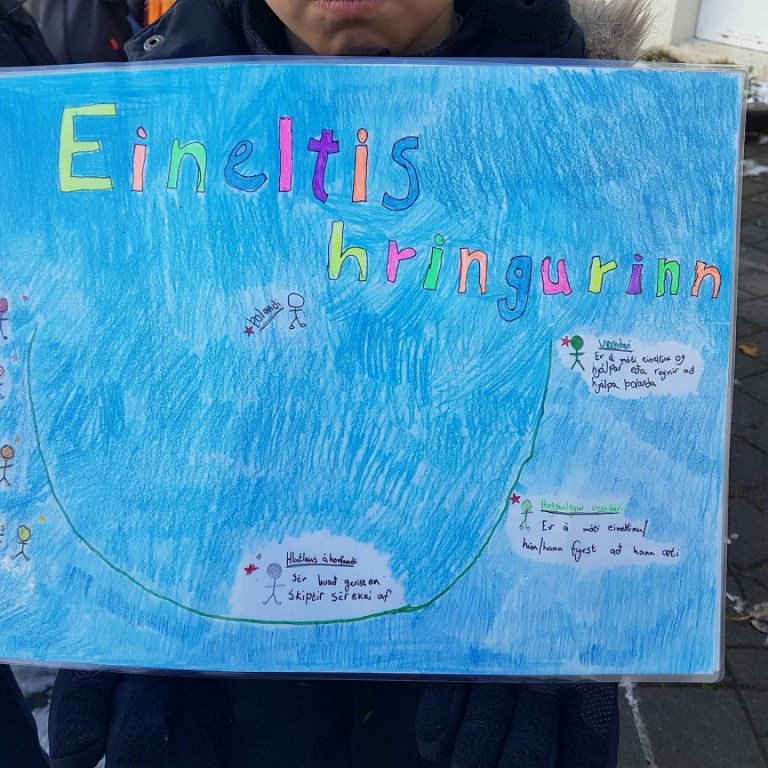 Eineltis
hringurinn
þolandi
Verndari
Er á móti eineltinu og
hjálpar eða reynir að
hjálpa þolanda
Hugsanlegur verndari
Er á móti eineltinu/
hún/hann fyrst að hann ætti
Hlutlaus áhorfandi
Sér hvað gerist en
Skiptir sér ekki af